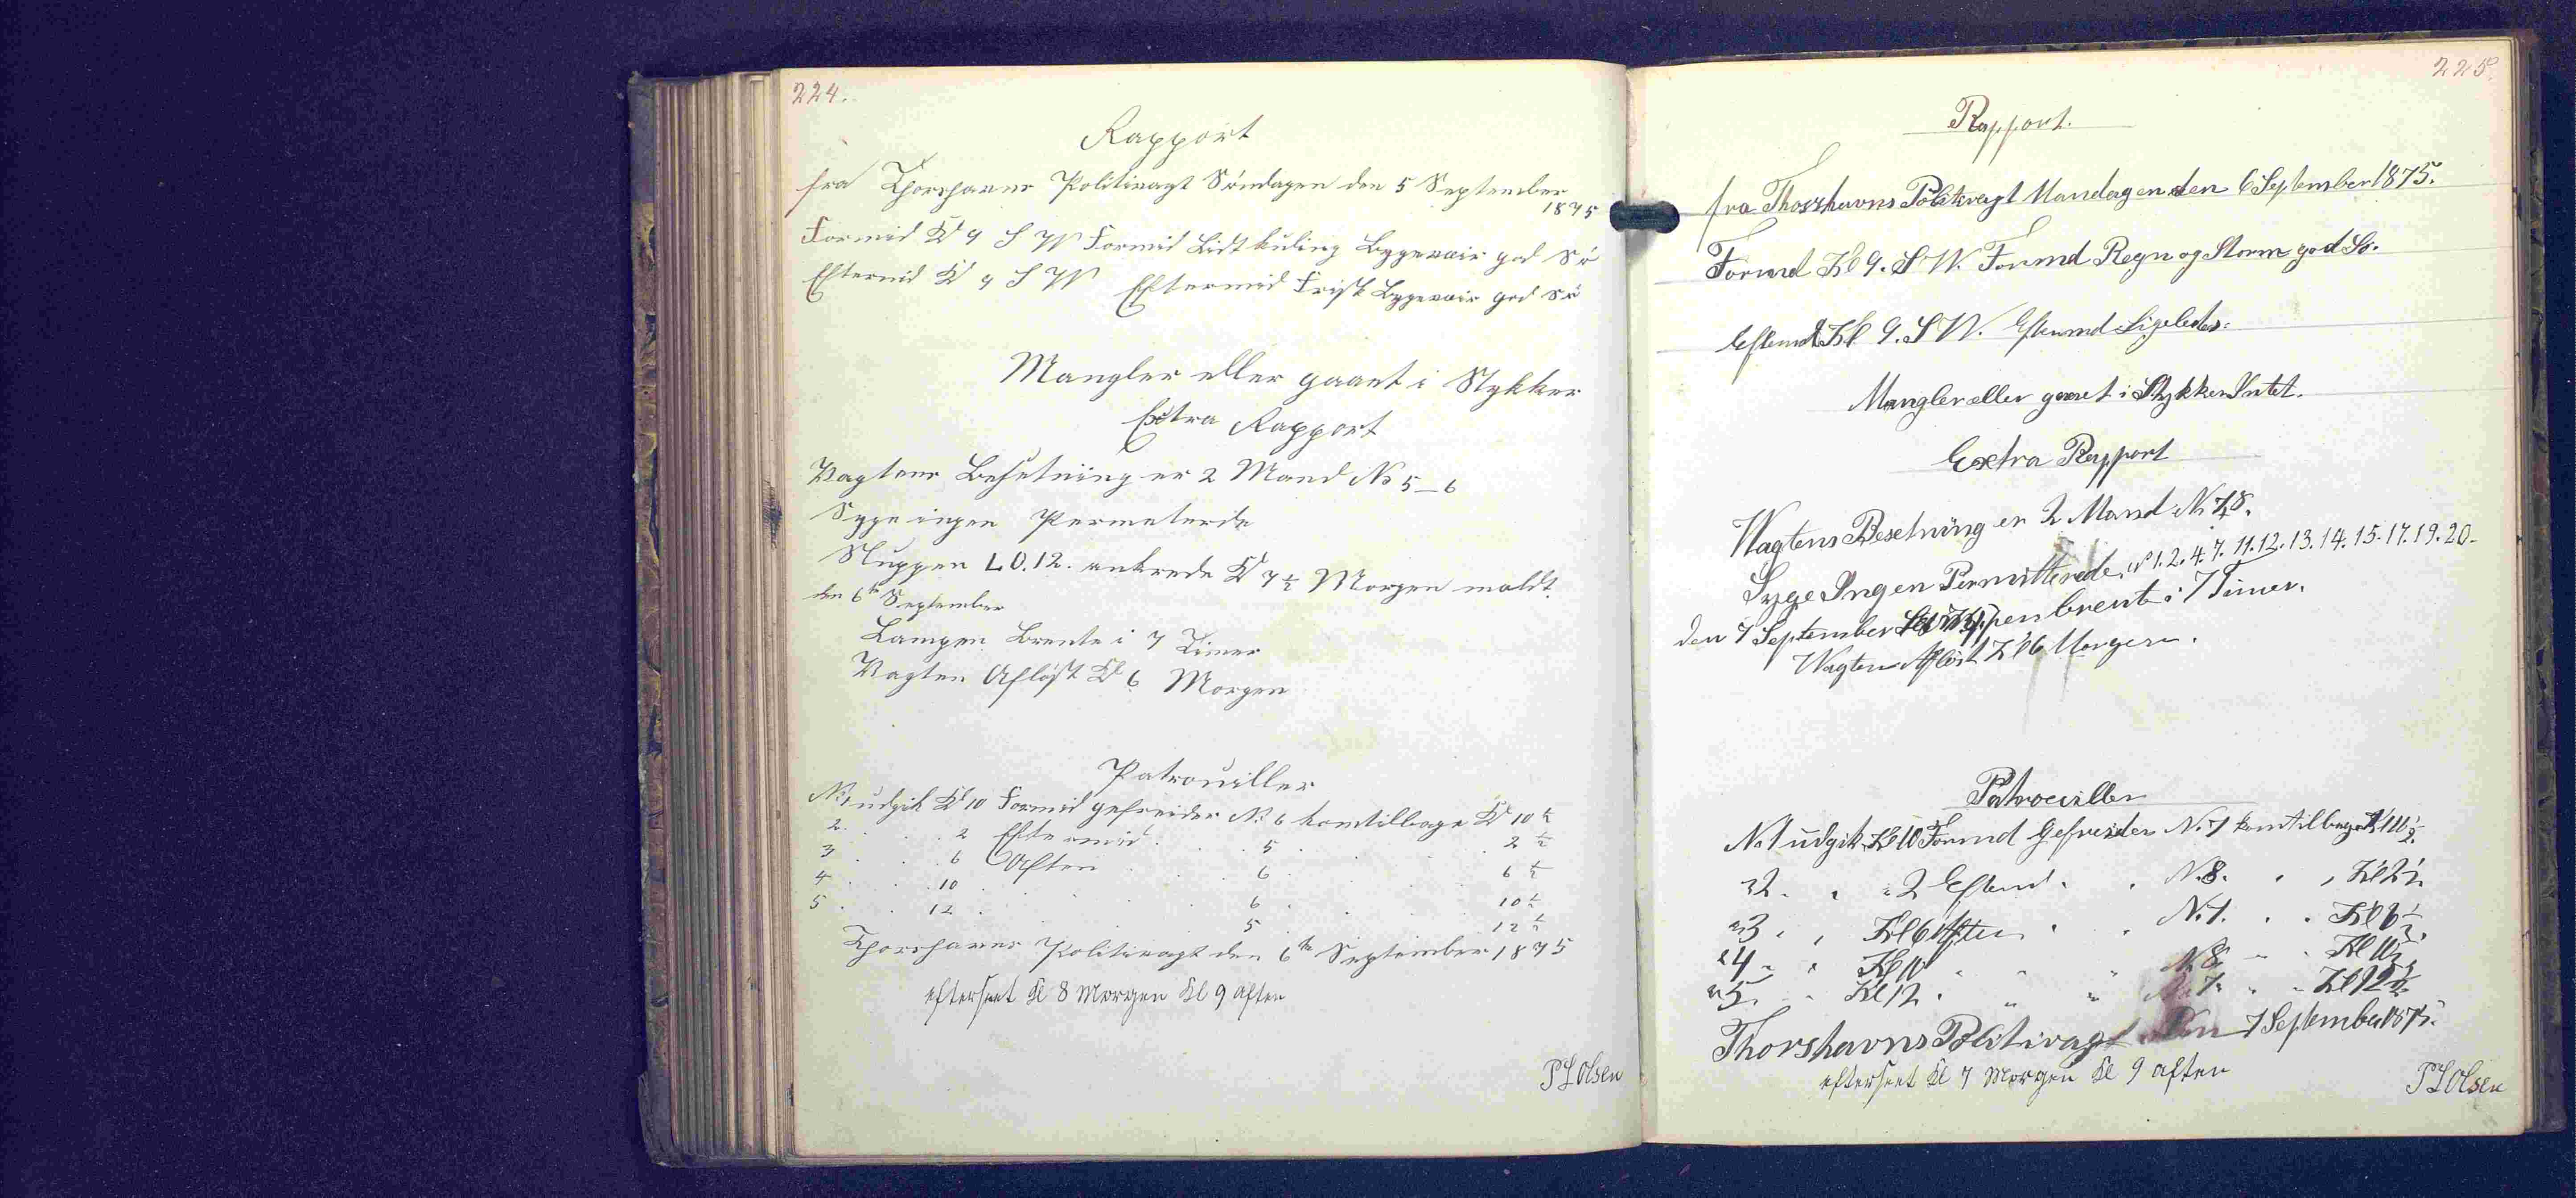 224.
Rapport
fra Thorshavns Politivagt Søndagen den 5 September
1875
Formid Kl 9 S W Formid Lidt kuling Bygevair god Sö
Eftermid Kl 9 S W Eftermid Frisk Bygevair god Sö
Mangler eller gaaet i Stykker
Extra Rapport
Vagtens Besetning er 2 Mand No 5_6
Syge ingen Permeterede
Sluppen L.O.12. ankrede Kl 7½ Morgen maldt.
den 6te September
Lampen Brente i 7 Timer
Vagten Aflöst Kl 6 Morgen
Patrouiller
No 1 udgik Kl 10 Formid gefreider No 6 komtilbage Kl 10½
2. . . 2 Eftermid . . 5 . . 2½
3 . . 6 Aften . . 6 . . 6½
4 . . 10 . . 6 . . 10½
5 . . 12 . . 5 . . 12½
Thorshavns Politivagt den 6te September 1875
efterseet Kl 8 Morgen Kl 9 aften
P L Olsen
225.
Rapport.
fra Thorshavns Politivagt Mandagen den 6 September 1875.
Formd Kl 9. S W. Formd Regn og Storm god Sö.
Eftermd Kl 9. S W. Eftermd Ligeledes.
Mangler eller gaaet i Stykker Intet.
Extra Rapport
Wagtens Besetning er 2 Mand N. 7,8.
Syge Ingen Permitterede. N 1. 2. 4. 7. 11. 12. 13. 14. 15. 17. 19. 20.
den 7 September Lampen brent i 7 Timer.
Wagten Aflöst Kl 6 Morgen.
Patrouiller
No 1 udgik Kl 10 Formd Gefreider N. 7 komtilbage Kl 10½.
" 2. " " 2 Eftermd. " N. 8. " " Kl 2½
" 3 " " Kl 6 Aften " " N. 7. " " Kl 6½.
" 4 " " Kl 10 " " " N. 8 " " Kl 10½
" 5. " Kl 12. " " N. 7. " " Kl 12½
Thorshavns Politivagt Den 7 September 1875.
efterseet Kl 7 Morgen Kl 9 aften
P L Olsen